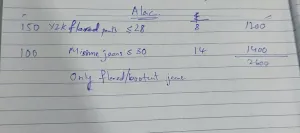 Alac. £
150 Y2K flared ≤28 8 1200
100 Missme jeans ≤30 14 1400
2600
Only flared/bootcut jeans